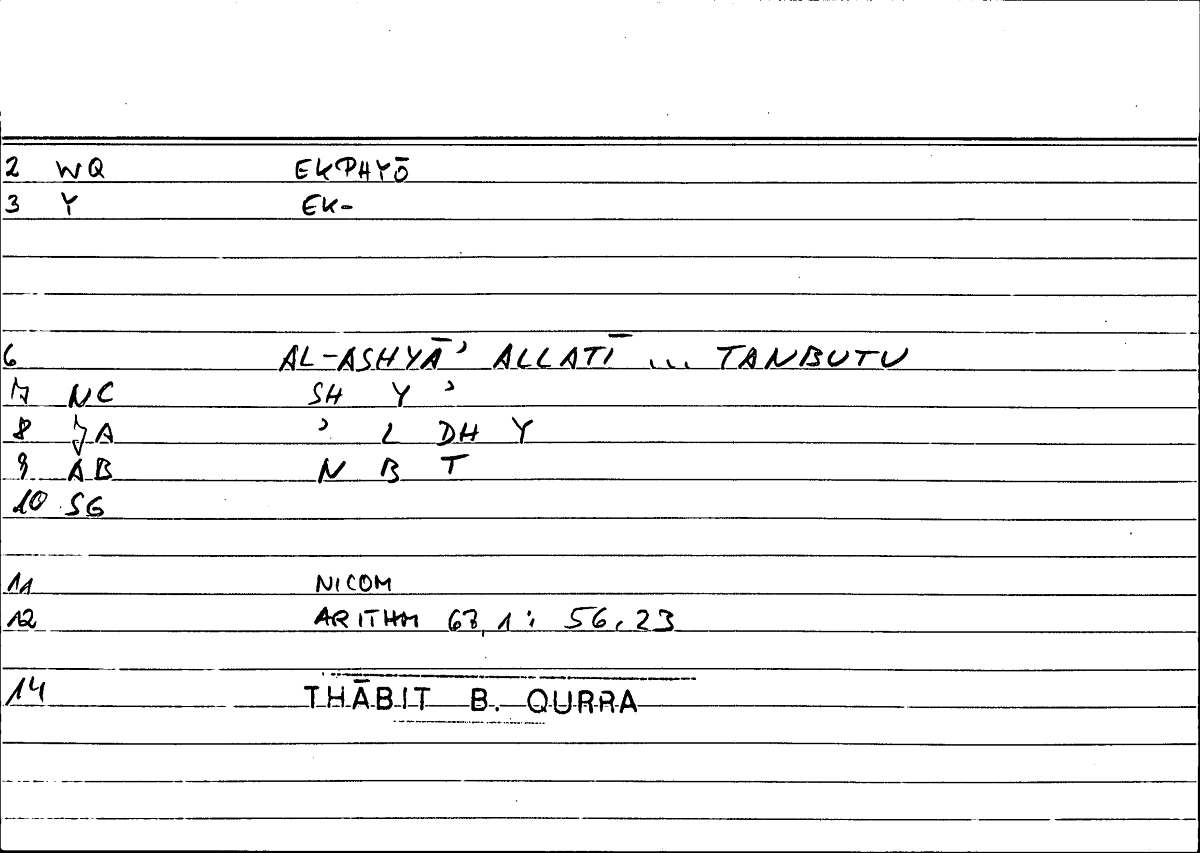 2 WQ EKPHYŌ
3 Y EK-
6 AL-ASHYĀ' ALLATĪ ... TANBUTU
7 NC SH Y '
8 JA ' L DH Y
9 AB N B T
10 SG
11 NICOM
12 ARITHM 67,1: 56,23
14 THĀBIT B. QURRA